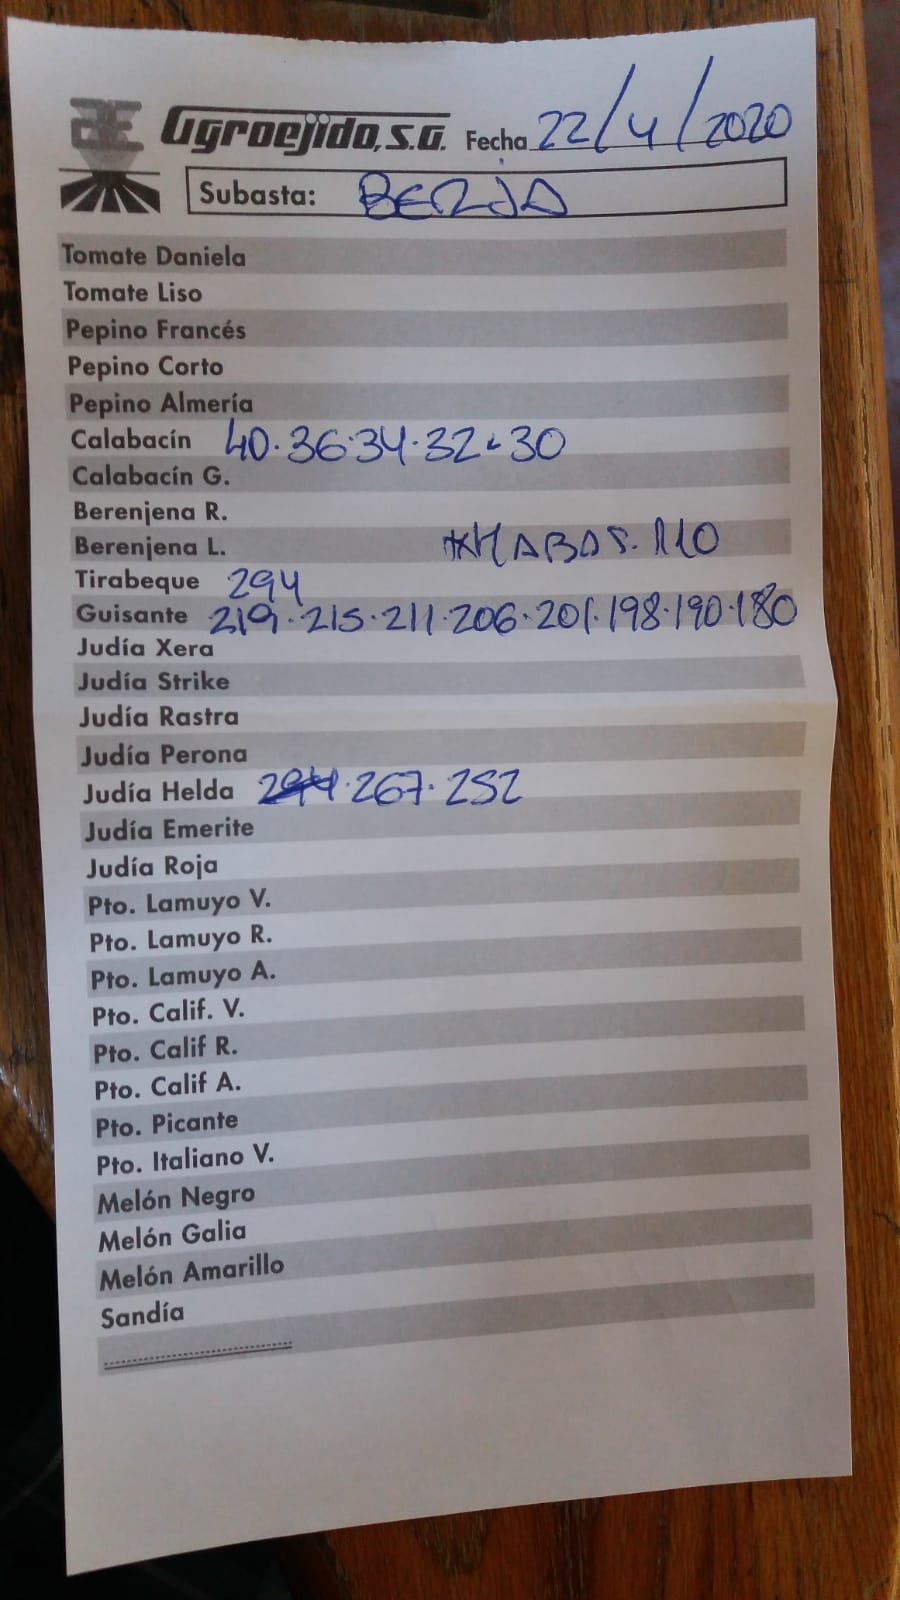 AE Agroejido, S.A. Fecha 22/4/2020
Subasta: BERJA
Tomate Daniela
Tomate Liso
Pepino Francés
Pepino Corto
Pepino Almería
Calabacín 40·36·34·32·30
Calabacín G.
Berenjena R.
Berenjena L. *HABAS. 110
Tirabeque 294
Guisante 219·215·211·206·201·198·190·180
Judía Xera
Judía Strike
Judía Rastra
Judía Perona
Judía Helda 294·267·252
Judía Emerite
Judía Roja
Pto. Lamuyo V.
Pto. Lamuyo R.
Pto. Lamuyo A.
Pto. Calif. V.
Pto. Calif R.
Pto. Calif A.
Pto. Picante
Pto. Italiano V.
Melón Negro
Melón Galia
Melón Amarillo
Sandía